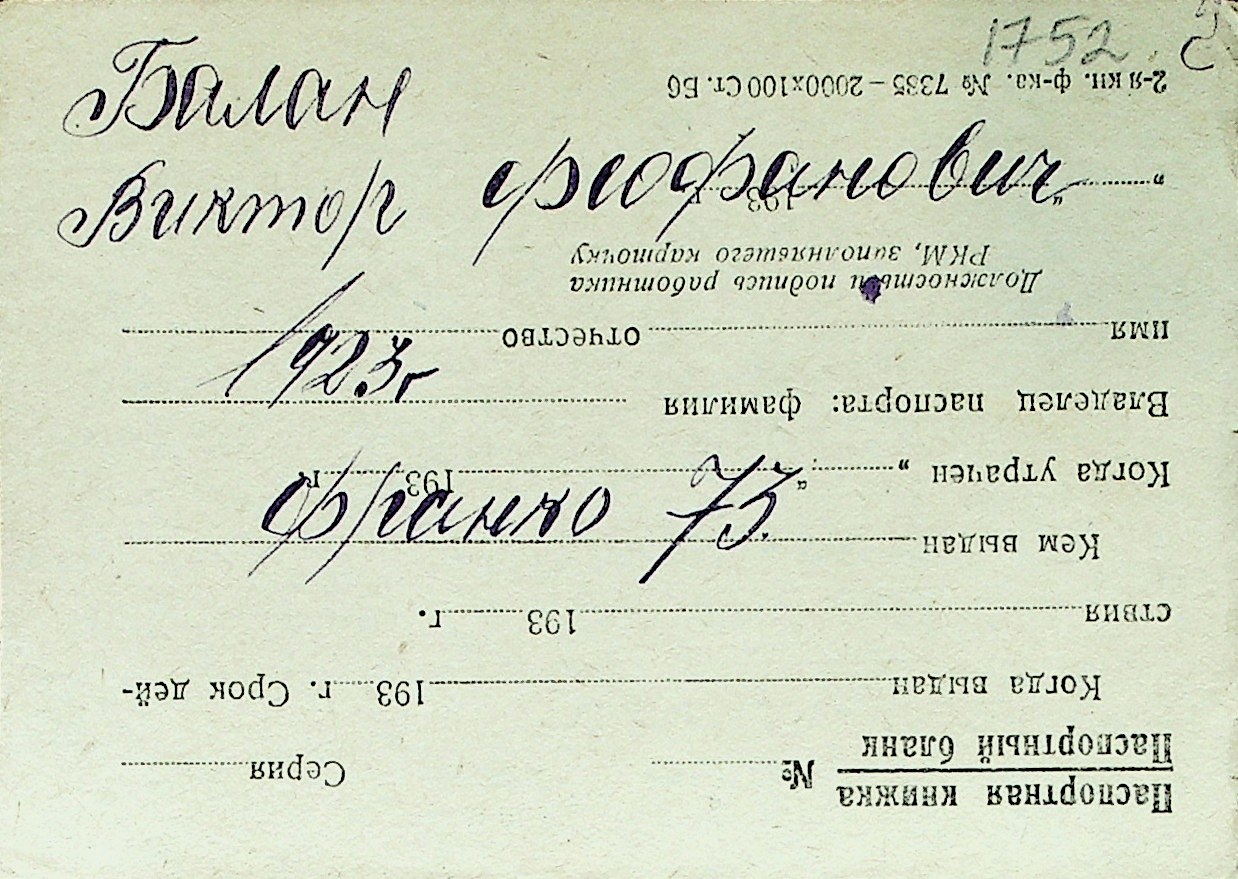 1752.
Балан
Виктор Феофанович
1923г
Франко 73.
Паспортная книжка
Паспортный бланк
№ Серия
Когда выдан 193 г. Срок дей-
ствия 193 г.
Кем выдан
Когда утрачен „ “ 193 г.
Владелец паспорта: фамилия
имя отчество
Должность и подпись работника
РКМ, заполнявшего карточку
„ “ 193 г.
2-я кн. ф-ка. № 7385 – 2000х100 Ст. Бб